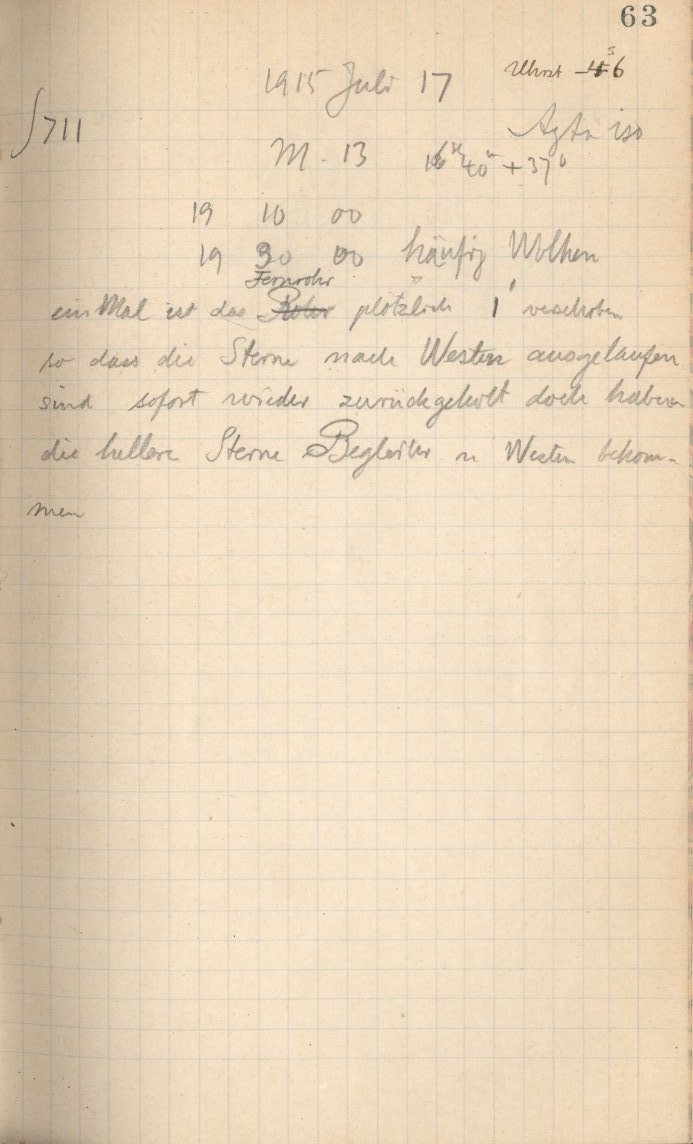 63
1915 Juli 17
Uhrst -6 s
S711
Agfa iso
M. 13 16h 40m +37°
19 10 00
19 30 00 häufig Wolken
Fernrohr
ein Mal ist das Rohr plötzlich 1' verschoben
so dass die Sterne nach Westen ausgelaufen
sind sofort wieder zurückgeholt doch haben
die hellere Sterne Begleiter n Westen bekom-
men